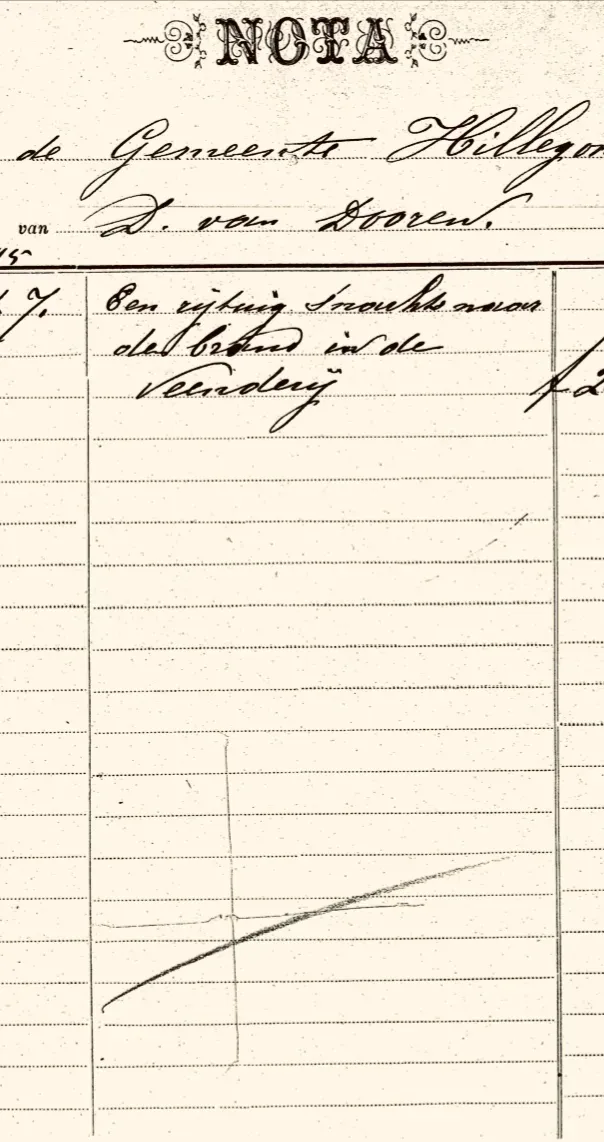 NOTA
de Gemeente Hillegom
van D. van Dooren.
7. Een rijtuig s'nachts naar
den brand in de
Veenderij f 2